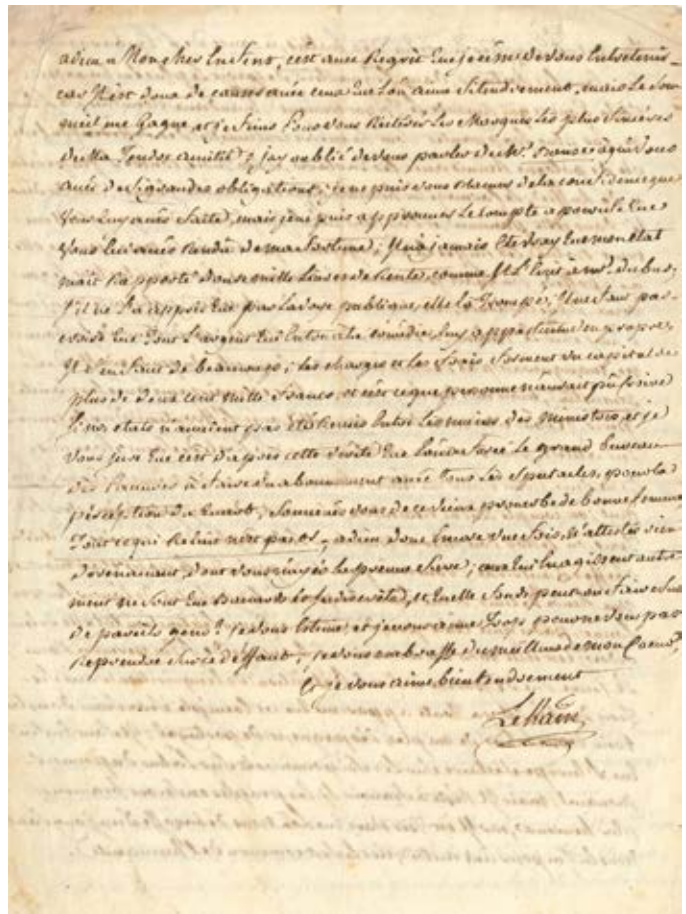 adieu Mon cher Enfent, c'est avec Regrèt que je cesse de vous Entretenir
car Il est doux de causer avec ceux que l'on aime si tendrement, mais le som
meil me Gagne et je finis pour vous Réïterer les Marques les plus sincères
de Ma Tendre amitié; j'ay oublié de vous parler de Mr. à qui vous
avés de si grandes obligations; je ne puis vous de la confidence que
vous luy avés faite, mais je ne puis approuver le compte que
vous lui avés Rendu de ma fortune; Il n'a jamais été vray que mon état
m'ait Rapporté douze mille Livres de Rente, comme Il à mr. dubus,
s'il ne l'a appris que par la voix publique, elle l'a Trompé; Il ne faut pas
croire que Tout l'argent qui Entre à la comédie, luy appartienne en propre,
Il s'en faut de beaucoup; les charges et les frais forment un capital de
plus de deux cent mille francs, et c'est ce que personne n'auroit pû croire
si nos états n'avoient pas été Remis Entre les mains des ministres, et je
vous jure que c'est d'après cette vérité que l'on a forcé le grand bureau
des pauvres à faire un abonnement avec tous les spectacles, pour la
perception du ; souvenés vous de ce vieux proverbe de bonne femme
Tout ce qui Reluit n'est pas or; adieu donc Encore une fois, n'attestés rien
dorénavant, dont vous n'ayés la preuve sûre; ceux qui En agissent autre
ment ne sont que Bavards et Indiscrets, et quelle fonds peut on faire sur
de pareils gens? je vous Estime, et je vous aime Trop pour ne vous pas
Reprendre sur ce déffaut; je vous embrasse du meilleur de mon Coeur,
Et je vous aime bien tendrement
LeKain